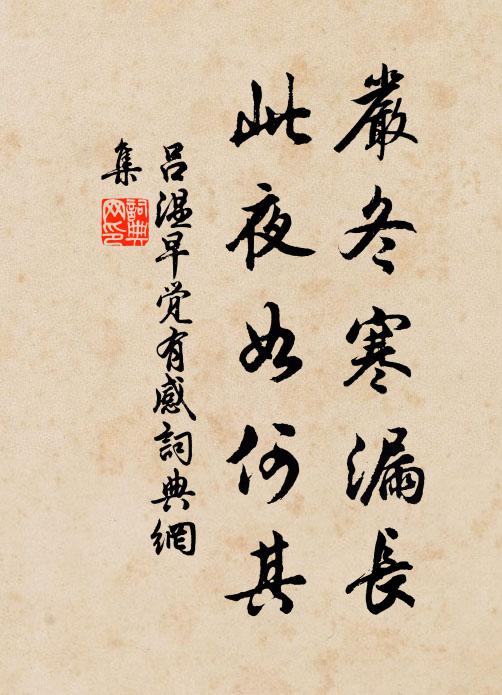 嚴冬寒漏長
此夜如何其
呂溫早觉有感詞典網
集
詞典
网印